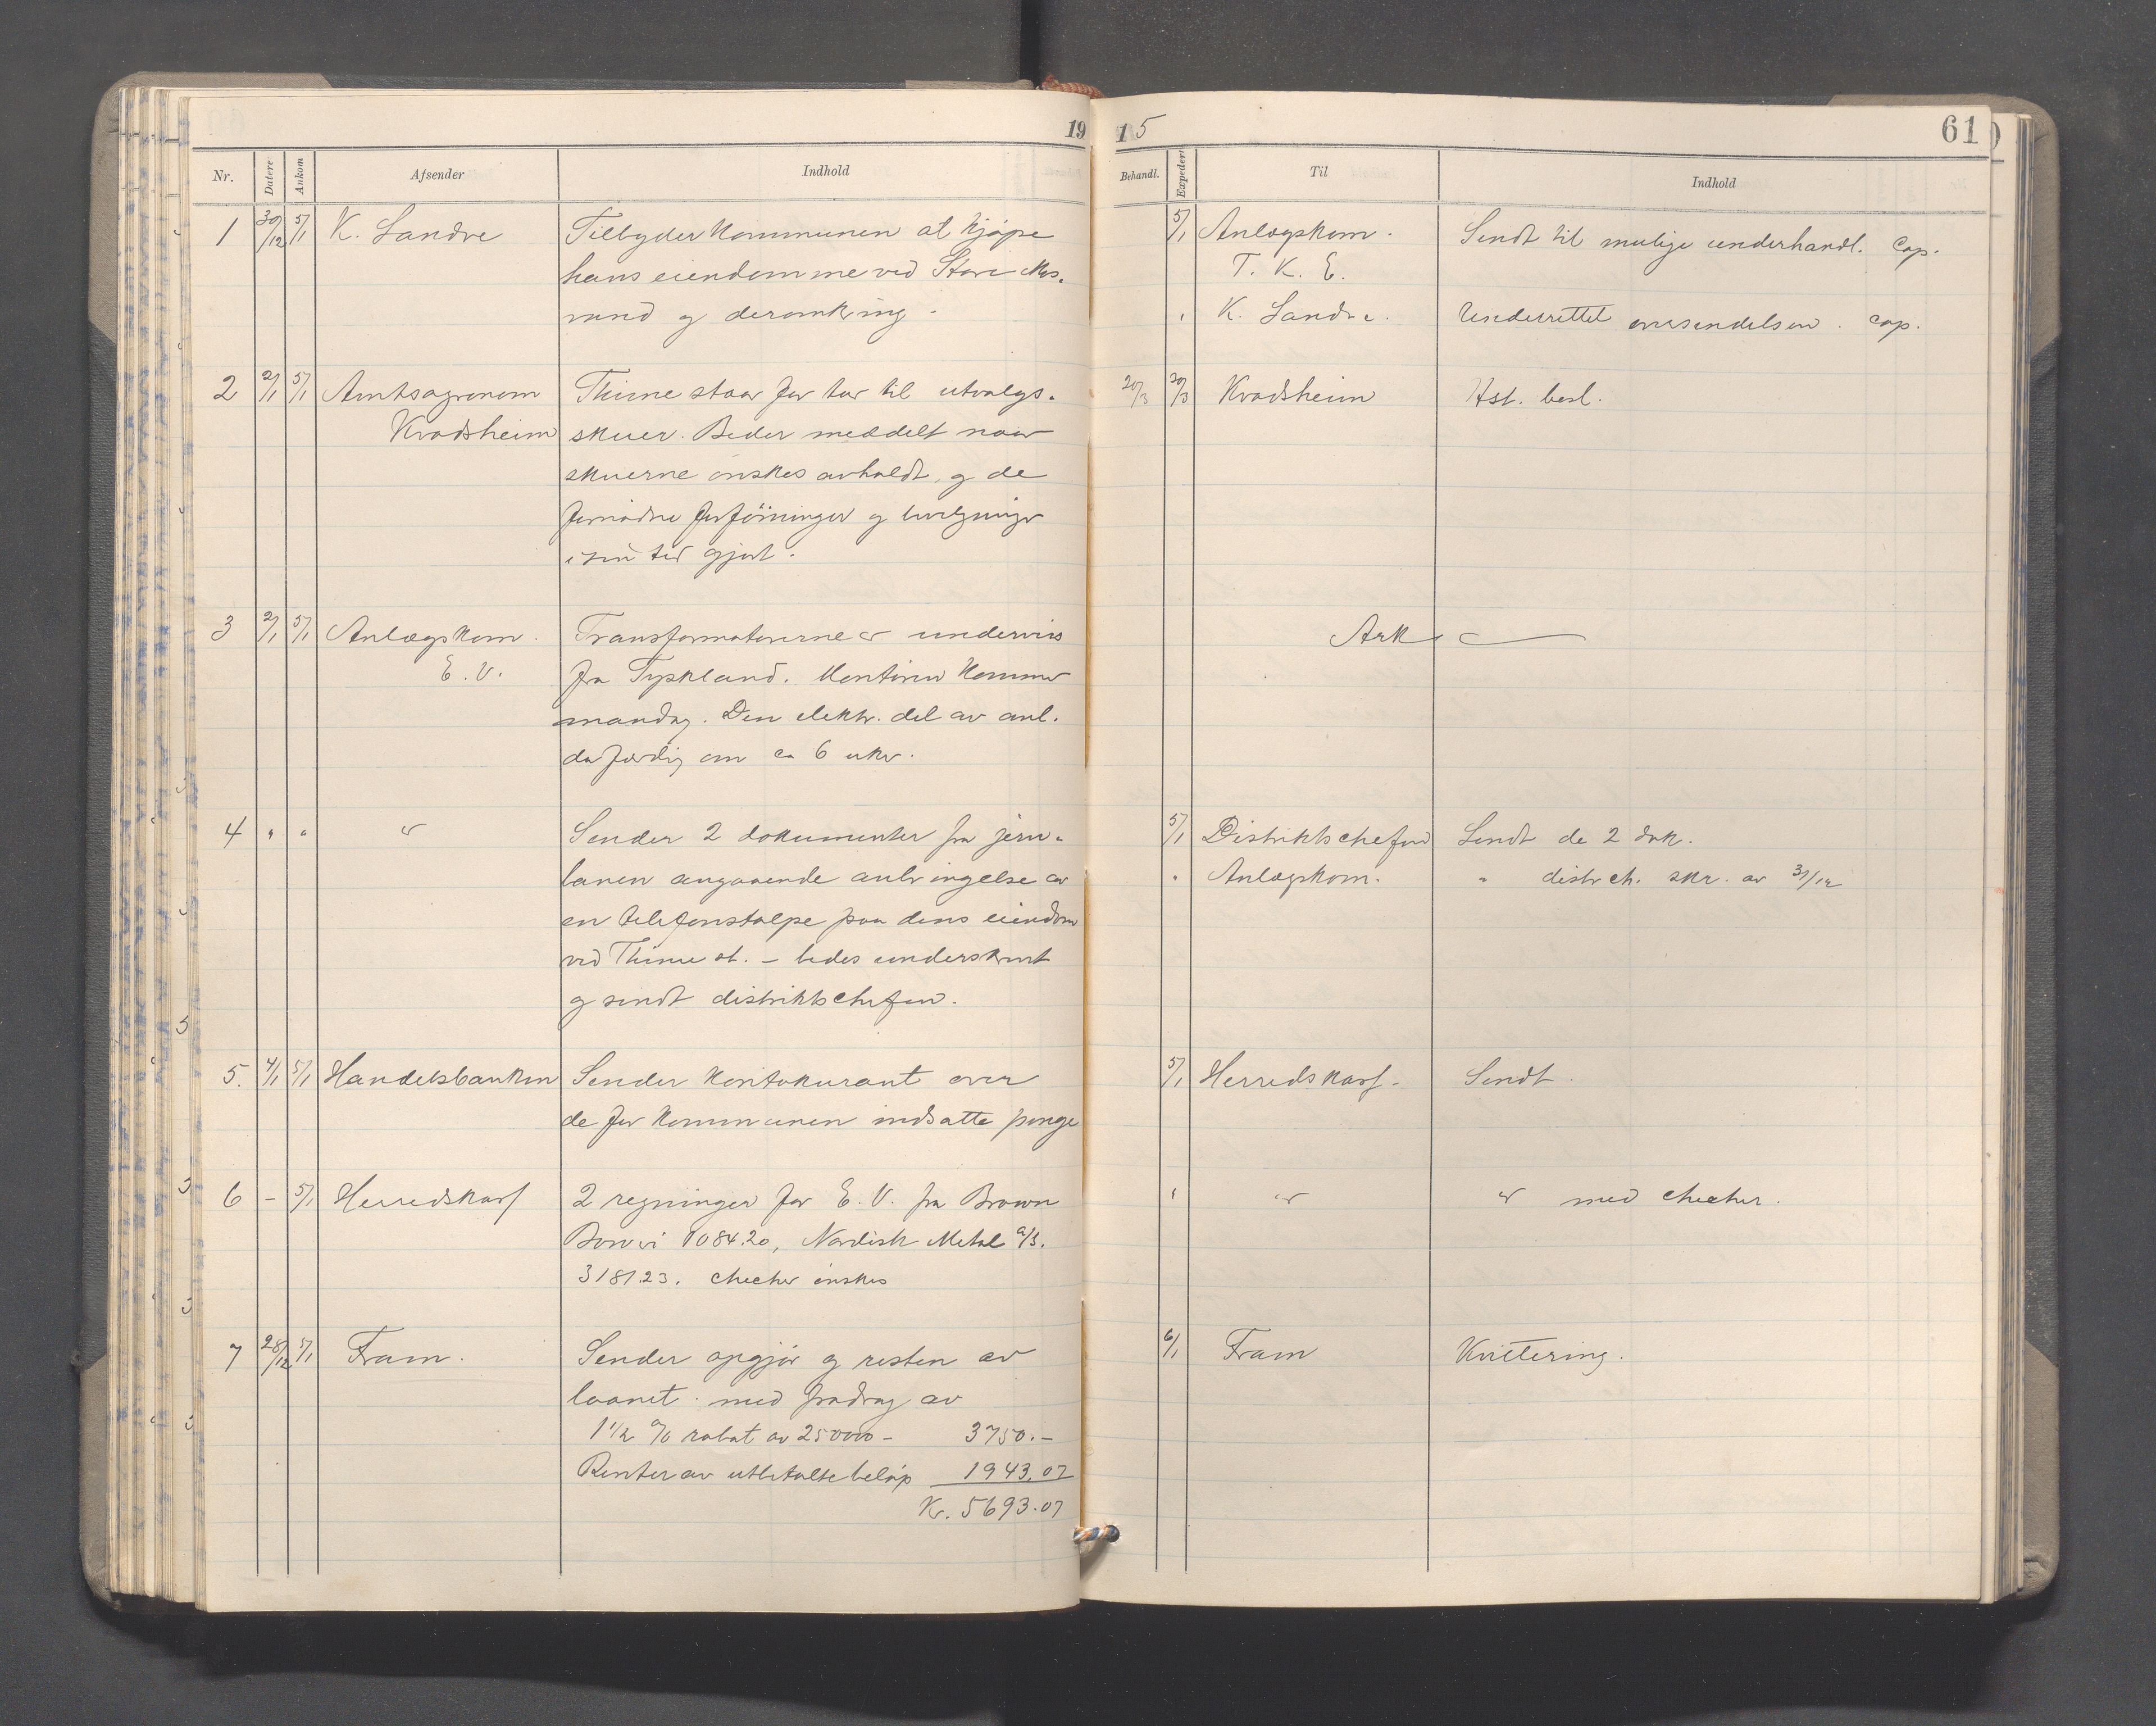 19
Nr. Datert Ankom Afsender Indhold
1 30/12 5/1 K. Landre Tilbyder kommunen at kjøpe
hans eiendomme ved Store Mos-
vand og deromkring.
2 2/1 5/1 Amtsagronom Thime staar for tur til utvalgs-
Kvadsheim skuer. Beder meddelt naar
skuerne ønskes avholdt, og de
fornødne forføininger og
i sin tid gjort.
3 2/1 5/1 Anlægskom. Transformatorerne er underveis
E. V. fra Tyskland. Montøren kommer
mandag. Den elektr. del av anl.
da færdig om ca 6 uker.
4 " " " Sender 2 dokumenter fra jern-
banen angaaende anbringelse av
en telefonstolpe paa dens eiendom
ved Thime st. – bedes underskrevet
og sendt distriktschefen.
5. 4/1 5/1 Handelsbanken Sender kontokurant over
de for kommunen indsatte penge
6 – 5/1 Herredskass. 2 regninger for E. V. fra Brown
Boveri 1084.20, Nordisk Metal a/s.
3181.23. checker ønskes
7 28/12 5/1 Fram. Sender opgjør og resten av
laanet. med fradrag av
1 1/2 % rabat av 250000 – 3750.–
Renter av utbetalte beløp 1943.07
Kr. 5693.07
15 61
Behandl. Expedert Til Indhold
5/1 Anlægskom. Sendt til mulige underhandl. Cop.
T. K. E.
" K. Landre. Underrettet oversendelsen. cop.
20/3 20/3 Kvadsheim Hst. besl.
Ark
5/1 Distriktschefen Sendt de 2 dok.
" Anlægskom. " distr.ch. skr. av 31/12
5/1 Herredskass. Sendt.
" " " med checker.
6/1 Fram Kvittering.